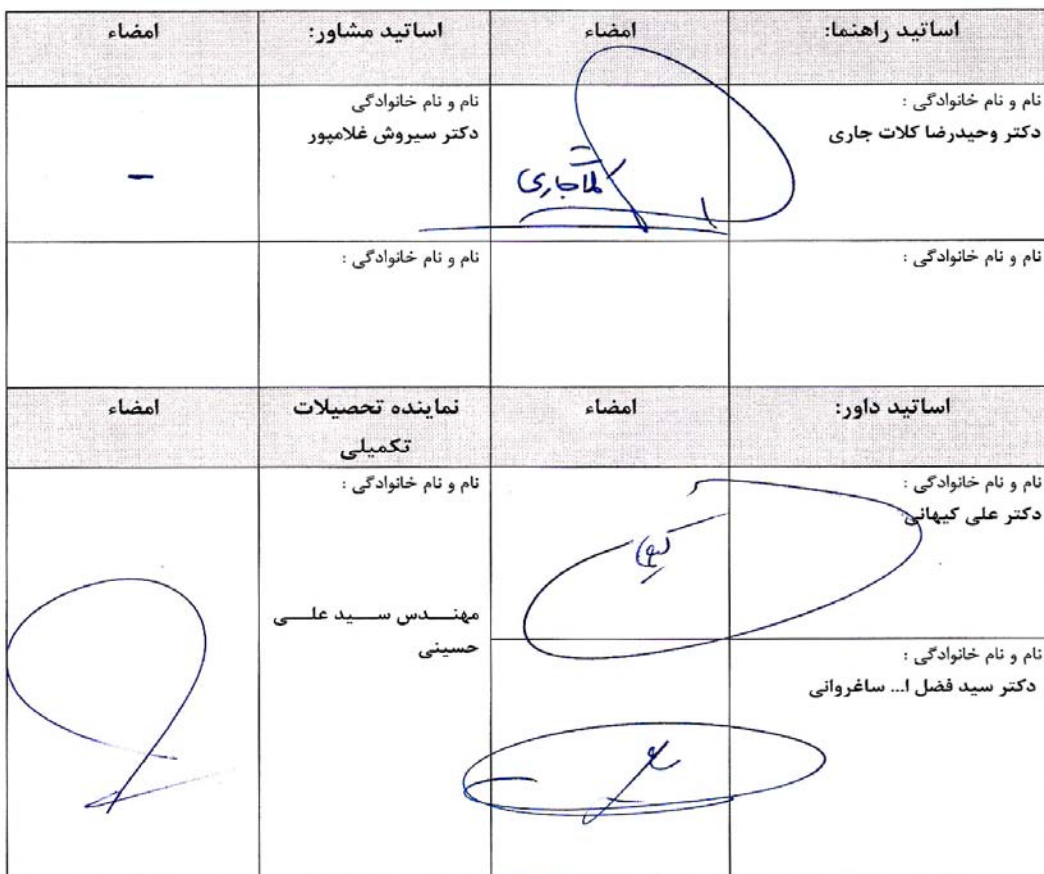 اساتید راهنما:
امضاء
اساتید مشاور:
امضاء
نام و نام خانوادگی :
دکتر وحیدرضا کلات جاری
کلاتجاری
نام و نام خانوادگی
دکتر سیروش غلامپور
-
نام و نام خانوادگی :
نام و نام خانوادگی :
اساتید داور:
امضاء
نماینده تحصیلات
تکمیلی
امضاء
نام و نام خانوادگی :
دکتر علی کیهانی
نام و نام خانوادگی :
مهنـــدس ســـید علـــی
حسینی
نام و نام خانوادگی :
دکتر سید فضل ا... ساغروانی